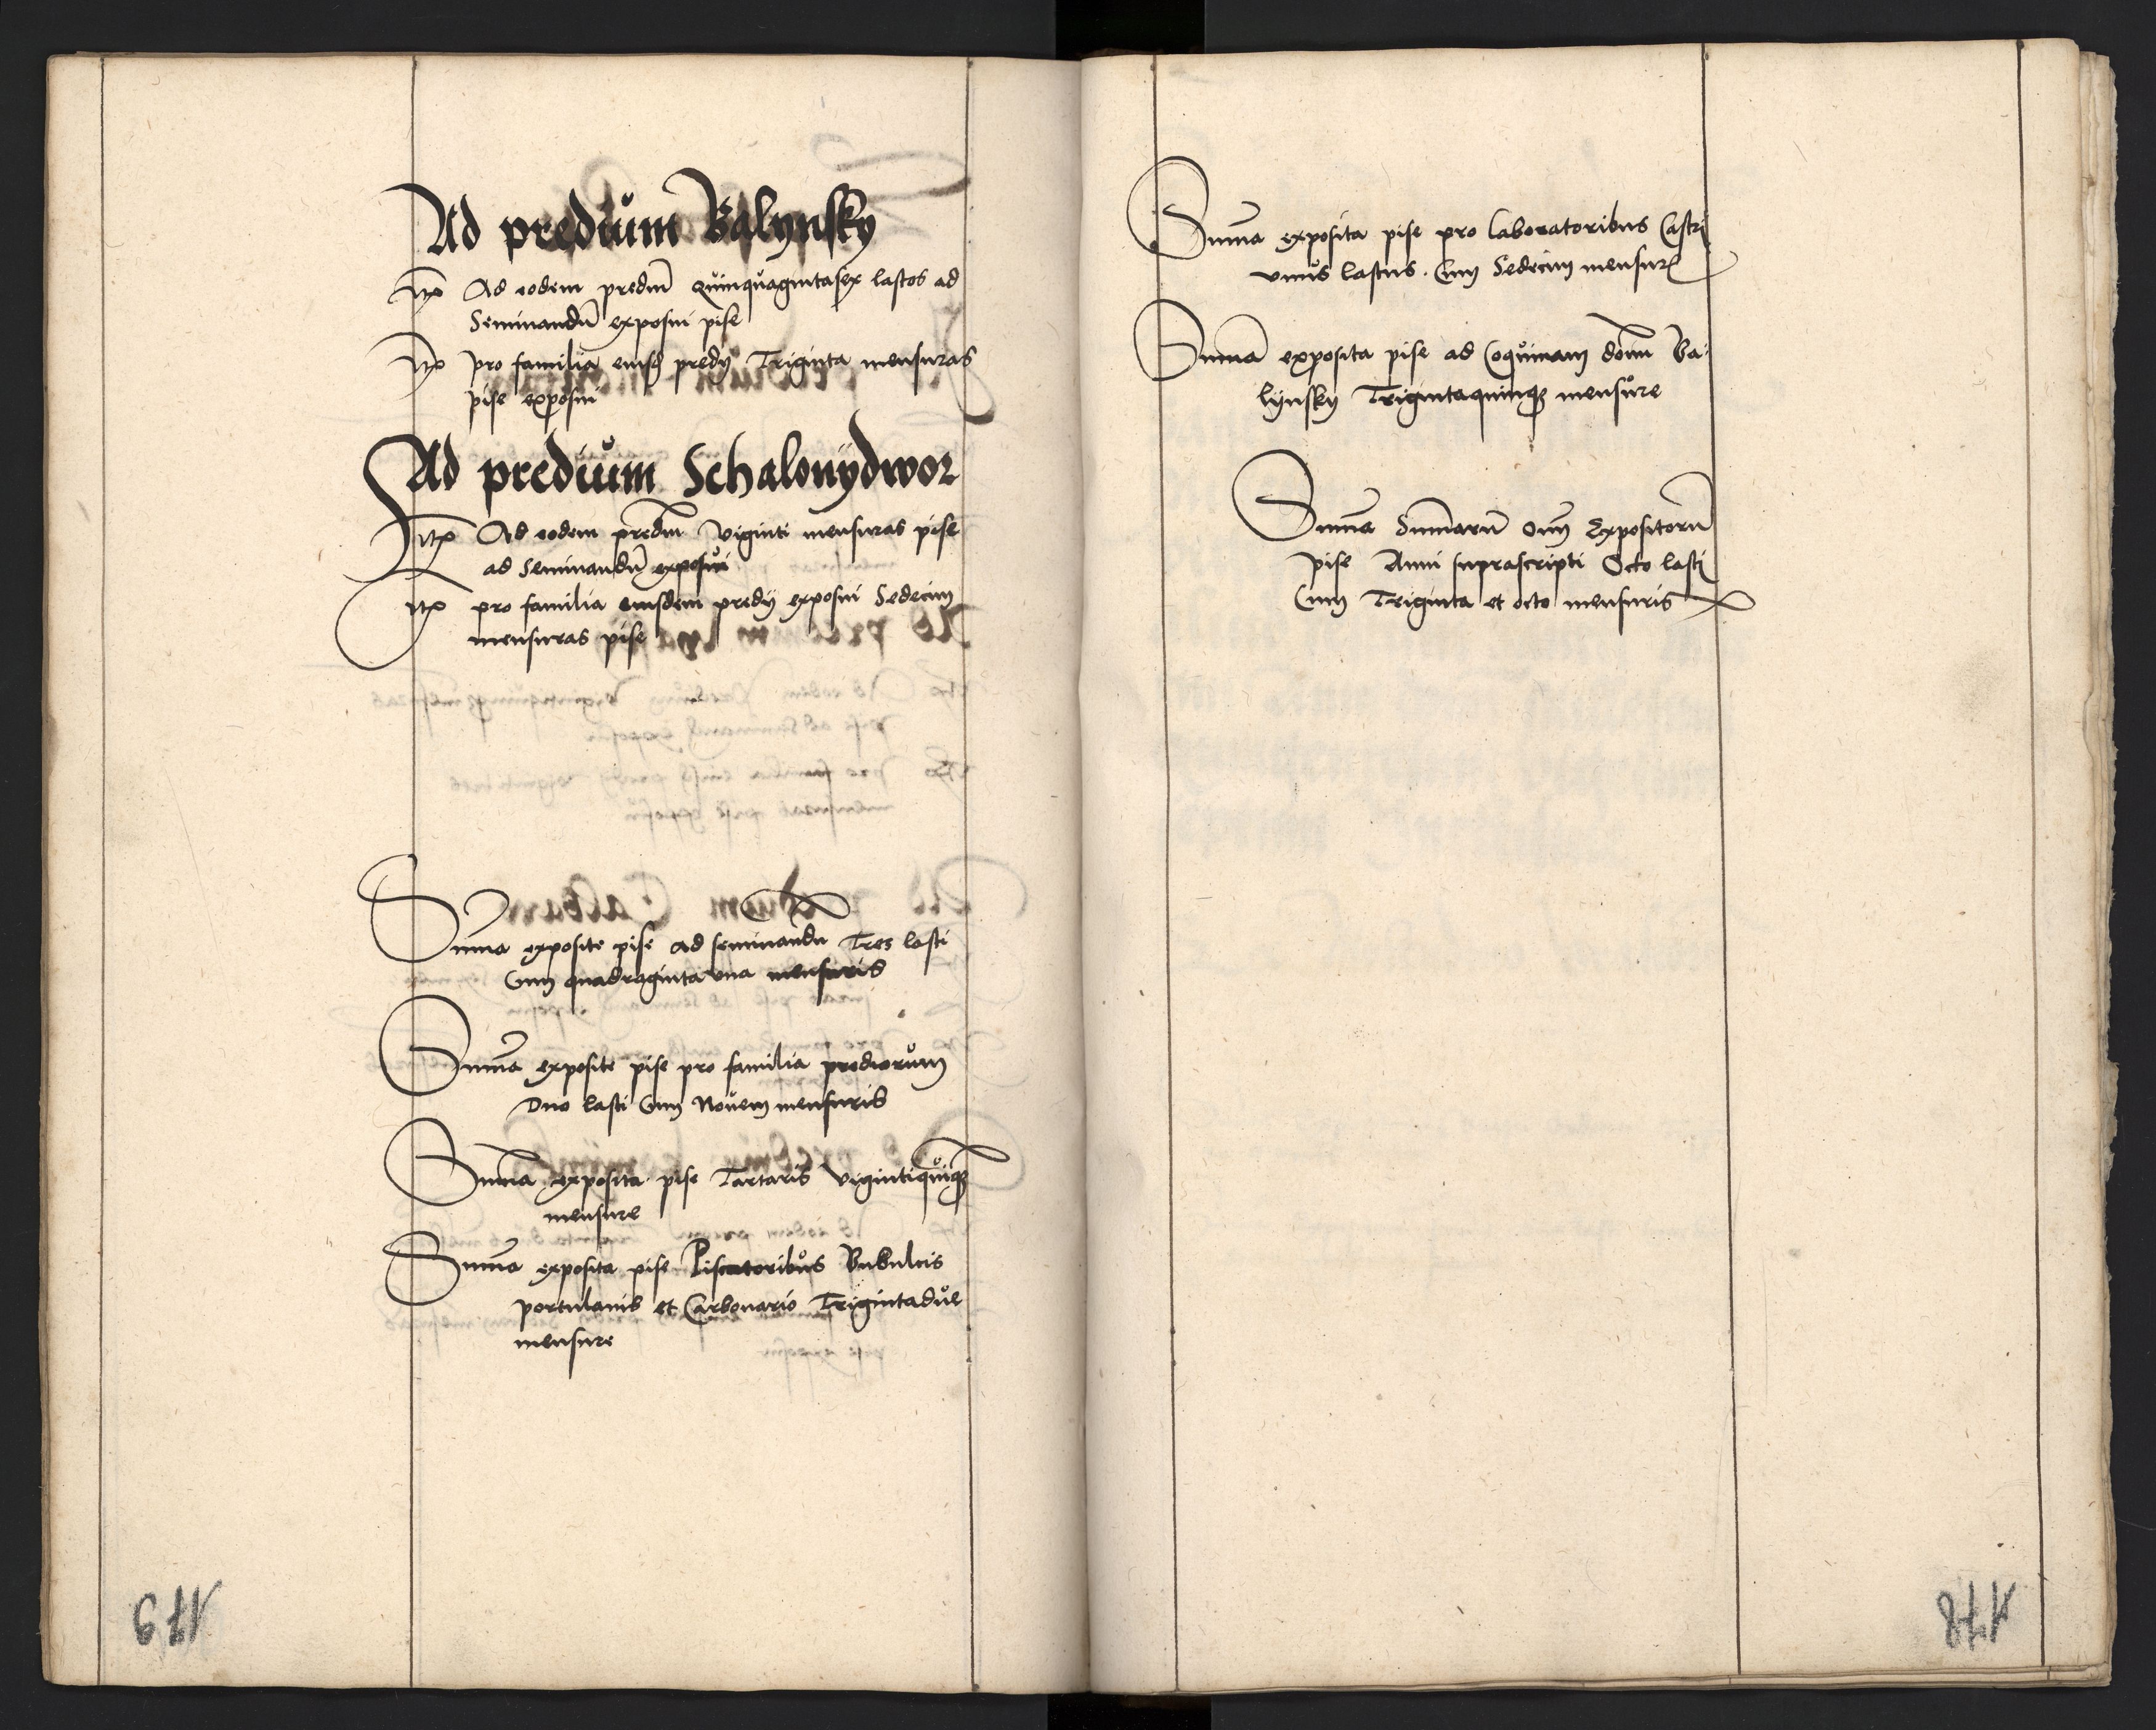 Ad prediům Valynsky
Itẽ Ad eodem prediũ Quinquagintasex lastos ad
Seminandũ exposui pise
Itẽ pro familia eiusd predij Triginta mensuras
pise exposui
Ad prediům Schalonÿdwor
Itẽ Ad eodem prediũ viginti mensuras pise
ad Seminandũ exposui
Itẽ pro familia eiusdem predij exposui Sedecim
mensuras pise
Suma exposite pise ad seminandu Tres lasti
Cum quadraginta vna mensuris
Suma exposite pise pro familia prediorům
Duo lasti Cum Nouem mensuris
Suma exposita pise Tartaris vigintiquiqȝ
mensure
Suma exposita pise Piscatoribůs Bubulcis
portulanis et Carbonario Trigintadůe
mensure
179
Suma exposita pise pro laboratoribus Castri
vnůs lastus. Cum Sedecim mensur
Suma exposita pise ad Coquinam domi Va-
lynsky Trigintaquinqȝ mensůre
Suma Sumarũ Oim Expositorũ
pise Anni suprascripti Octo lasti
Cum Triginta et octo mensuris
178